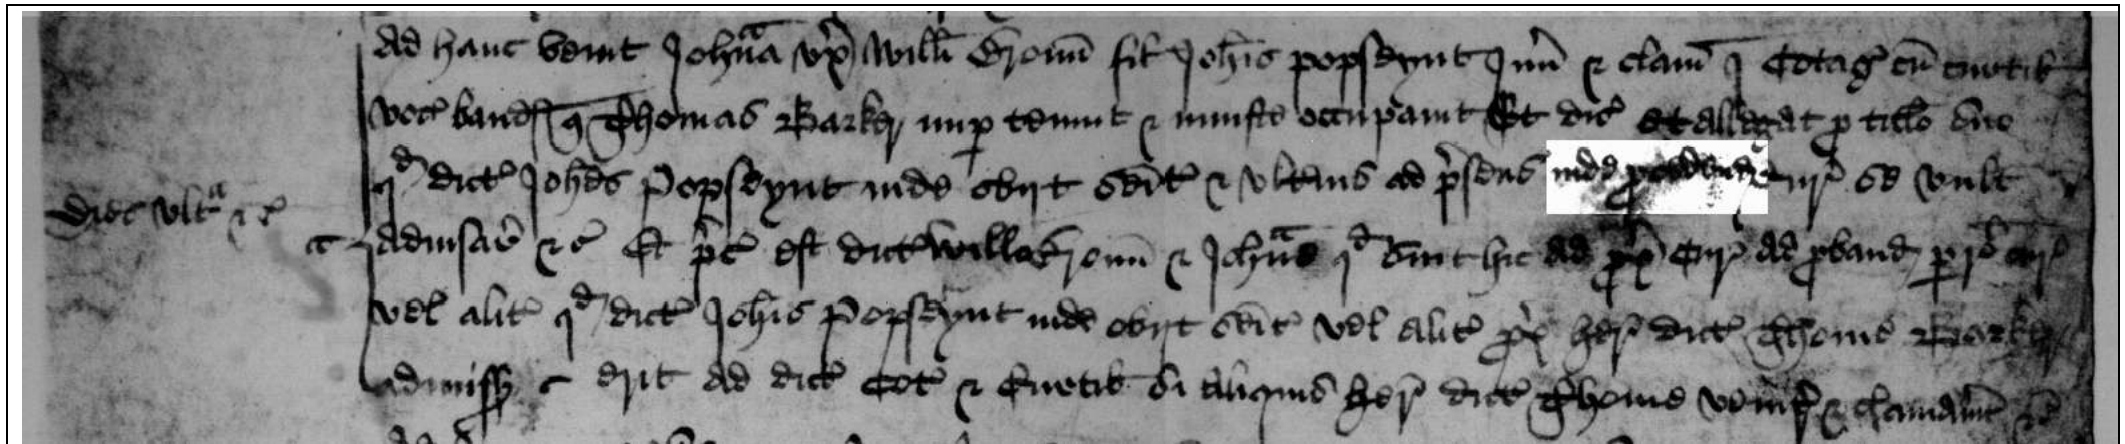 Ad hanc venit Joħna vx̄ Willī Gromī fil Joħis popseynt Jun̄ & clam̄ j Cotag cū curtil
voc band q Thomas Barker nup tenuit & iniuste occupauit Et dic̄ et allegat p titlo suo
qd dict Joħes Popseynt inde obijt seīt & vltimus ad p̄sens inde Cur se vult
Dies vlta & c̄
aduisare &c̄ Et p̄c̄ est dict Willo Gromī & Joħne qd sint hic ad px̄ Cur ad proband p Cur
vel alit qd dict Joħis Popseynt inde obijt seīt vel alit px̄ her dict Thome Barker
admiss erit ad dict Cot & Curtil si aliquis her dict Thome venir & clamauit &c̄